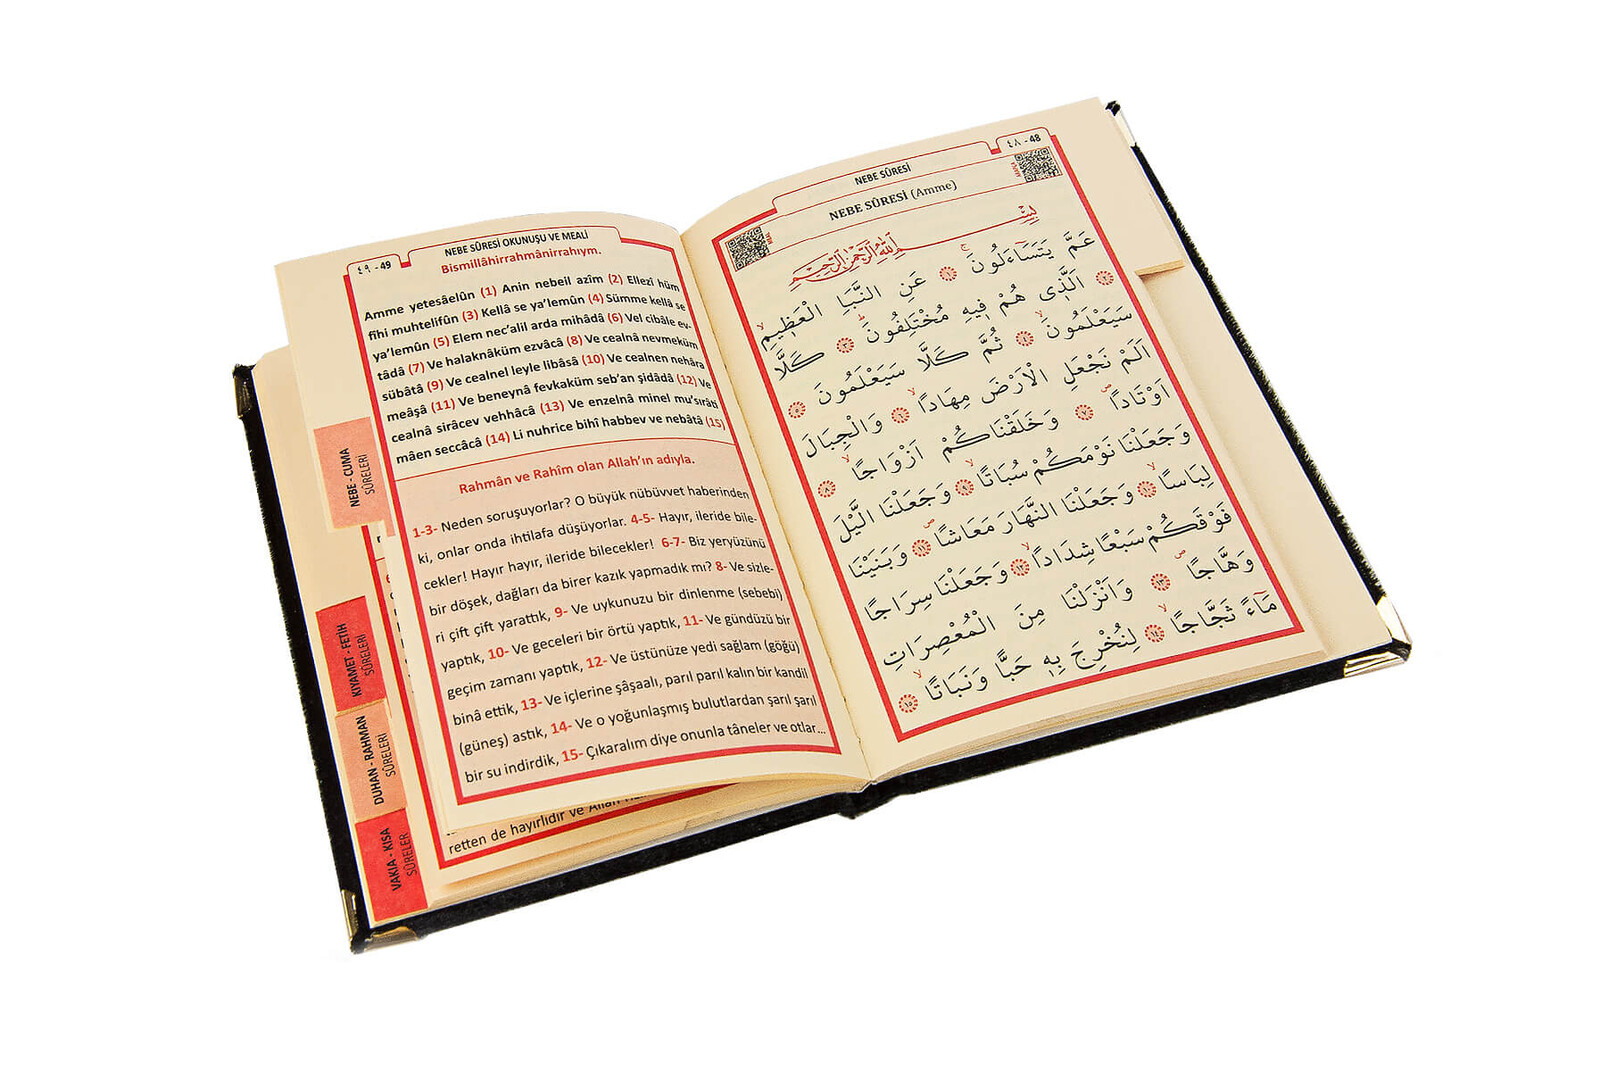 ٤٨ - 48
NEBE SÛRESİ
NEBE SÛRESİ (Amme)
بِسْمِ اللّٰهِ الرَّحْمٰنِ الرَّحِيمِ
عَمَّ يَتَسَٓاءَلُونَۚ ﴿١﴾ عَنِ النَّبَأِ الْعَظ۪يمِۙ
﴿٢﴾ اَلَّذ۪ي هُمْ ف۪يهِ مُخْتَلِفُونَۜ ﴿٣﴾ كَلَّا
سَيَعْلَمُونَۙ ﴿٤﴾ ثُمَّ كَلَّا سَيَعْلَمُونَ ﴿٥﴾
اَلَمْ نَجْعَلِ الْاَرْضَ مِهَادًاۙ ﴿٦﴾ وَالْجِبَالَ
اَوْتَادًاۖ ﴿٧﴾ وَخَلَقْنَاكُمْ اَزْوَاجًاۙ ﴿٨﴾
وَجَعَلْنَا نَوْمَكُمْ سُبَاتًاۙ ﴿٩﴾ وَجَعَلْنَا الَّيْلَ
لِبَاسًاۙ ﴿١٠﴾ وَجَعَلْنَا النَّهَارَ مَعَاشًاۖ ﴿١١﴾ وَبَنَيْنَا
فَوْقَكُمْ سَبْعًا شِدَادًاۙ ﴿١٢﴾ وَجَعَلْنَا سِرَاجًا
وَهَّاجًاۖ ﴿١٣﴾ وَاَنْزَلْنَا مِنَ الْمُعْصِرَاتِ
مَٓاءً ثَجَّاجًاۙ ﴿١٤﴾ لِنُخْرِجَ بِه۪ حَبًّا وَنَبَاتًاۙ ﴿١٥﴾
٤٩ - 49
NEBE SÛRESİ OKUNUŞU VE MEALİ
Bismillâhirrahmânirrahıym.
Amme yetesâelûn (1) Anin nebeil azîm (2) Ellezî hüm
fîhi muhtelifûn (3) Kellâ se ya’lemûn (4) Sümme kellâ se
ya’lemûn (5) Elem nec’alil arda mihâdâ (6) Vel cibâle ev-
tâdâ (7) Ve halaknâküm ezvâcâ (8) Ve cealnâ nevmeküm
sübâtâ (9) Ve cealnel leyle libâsâ (10) Ve cealnen nehâra
meâşâ (11) Ve beneynâ fevkaküm seb’an şidâdâ (12) Ve
cealnâ sirâcev vehhâcâ (13) Ve enzelnâ minel mu’sırâti
mâen seccâcâ (14) Li nuhrice bihî habbev ve nebâtâ (15)
Rahmân ve Rahîm olan Allah’ın adıyla.
1-3- Neden soruşuyorlar? O büyük nübüvvet haberinden
ki, onlar onda ihtilafa düşüyorlar. 4-5- Hayır, ileride bile-
cekler! Hayır hayır, ileride bilecekler! 6-7- Biz yeryüzünü
bir döşek, dağları da birer kazık yapmadık mı? 8- Ve sizle-
ri çift çift yarattık, 9- Ve uykunuzu bir dinlenme (sebebi)
yaptık, 10- Ve geceleri bir örtü yaptık, 11- Ve gündüzü bir
geçim zamanı yaptık, 12- Ve üstünüze yedi sağlam (göğü)
binâ ettik, 13- Ve içlerine şâşaalı, parıl parıl kalın bir kandil
(güneş) astık, 14- Ve o yoğunlaşmış bulutlardan şarıl şarıl
bir su indirdik, 15- Çıkaralım diye onunla tâneler ve otlar...
retten de hayırlıdır ve Allah
NEBE - CUMA
SÛRELERİ
KIYAMET - FETİH
SÛRELERİ
DUHAN - RAHMAN
SÛRELERİ
VAKIA - KISA
SÛRELER